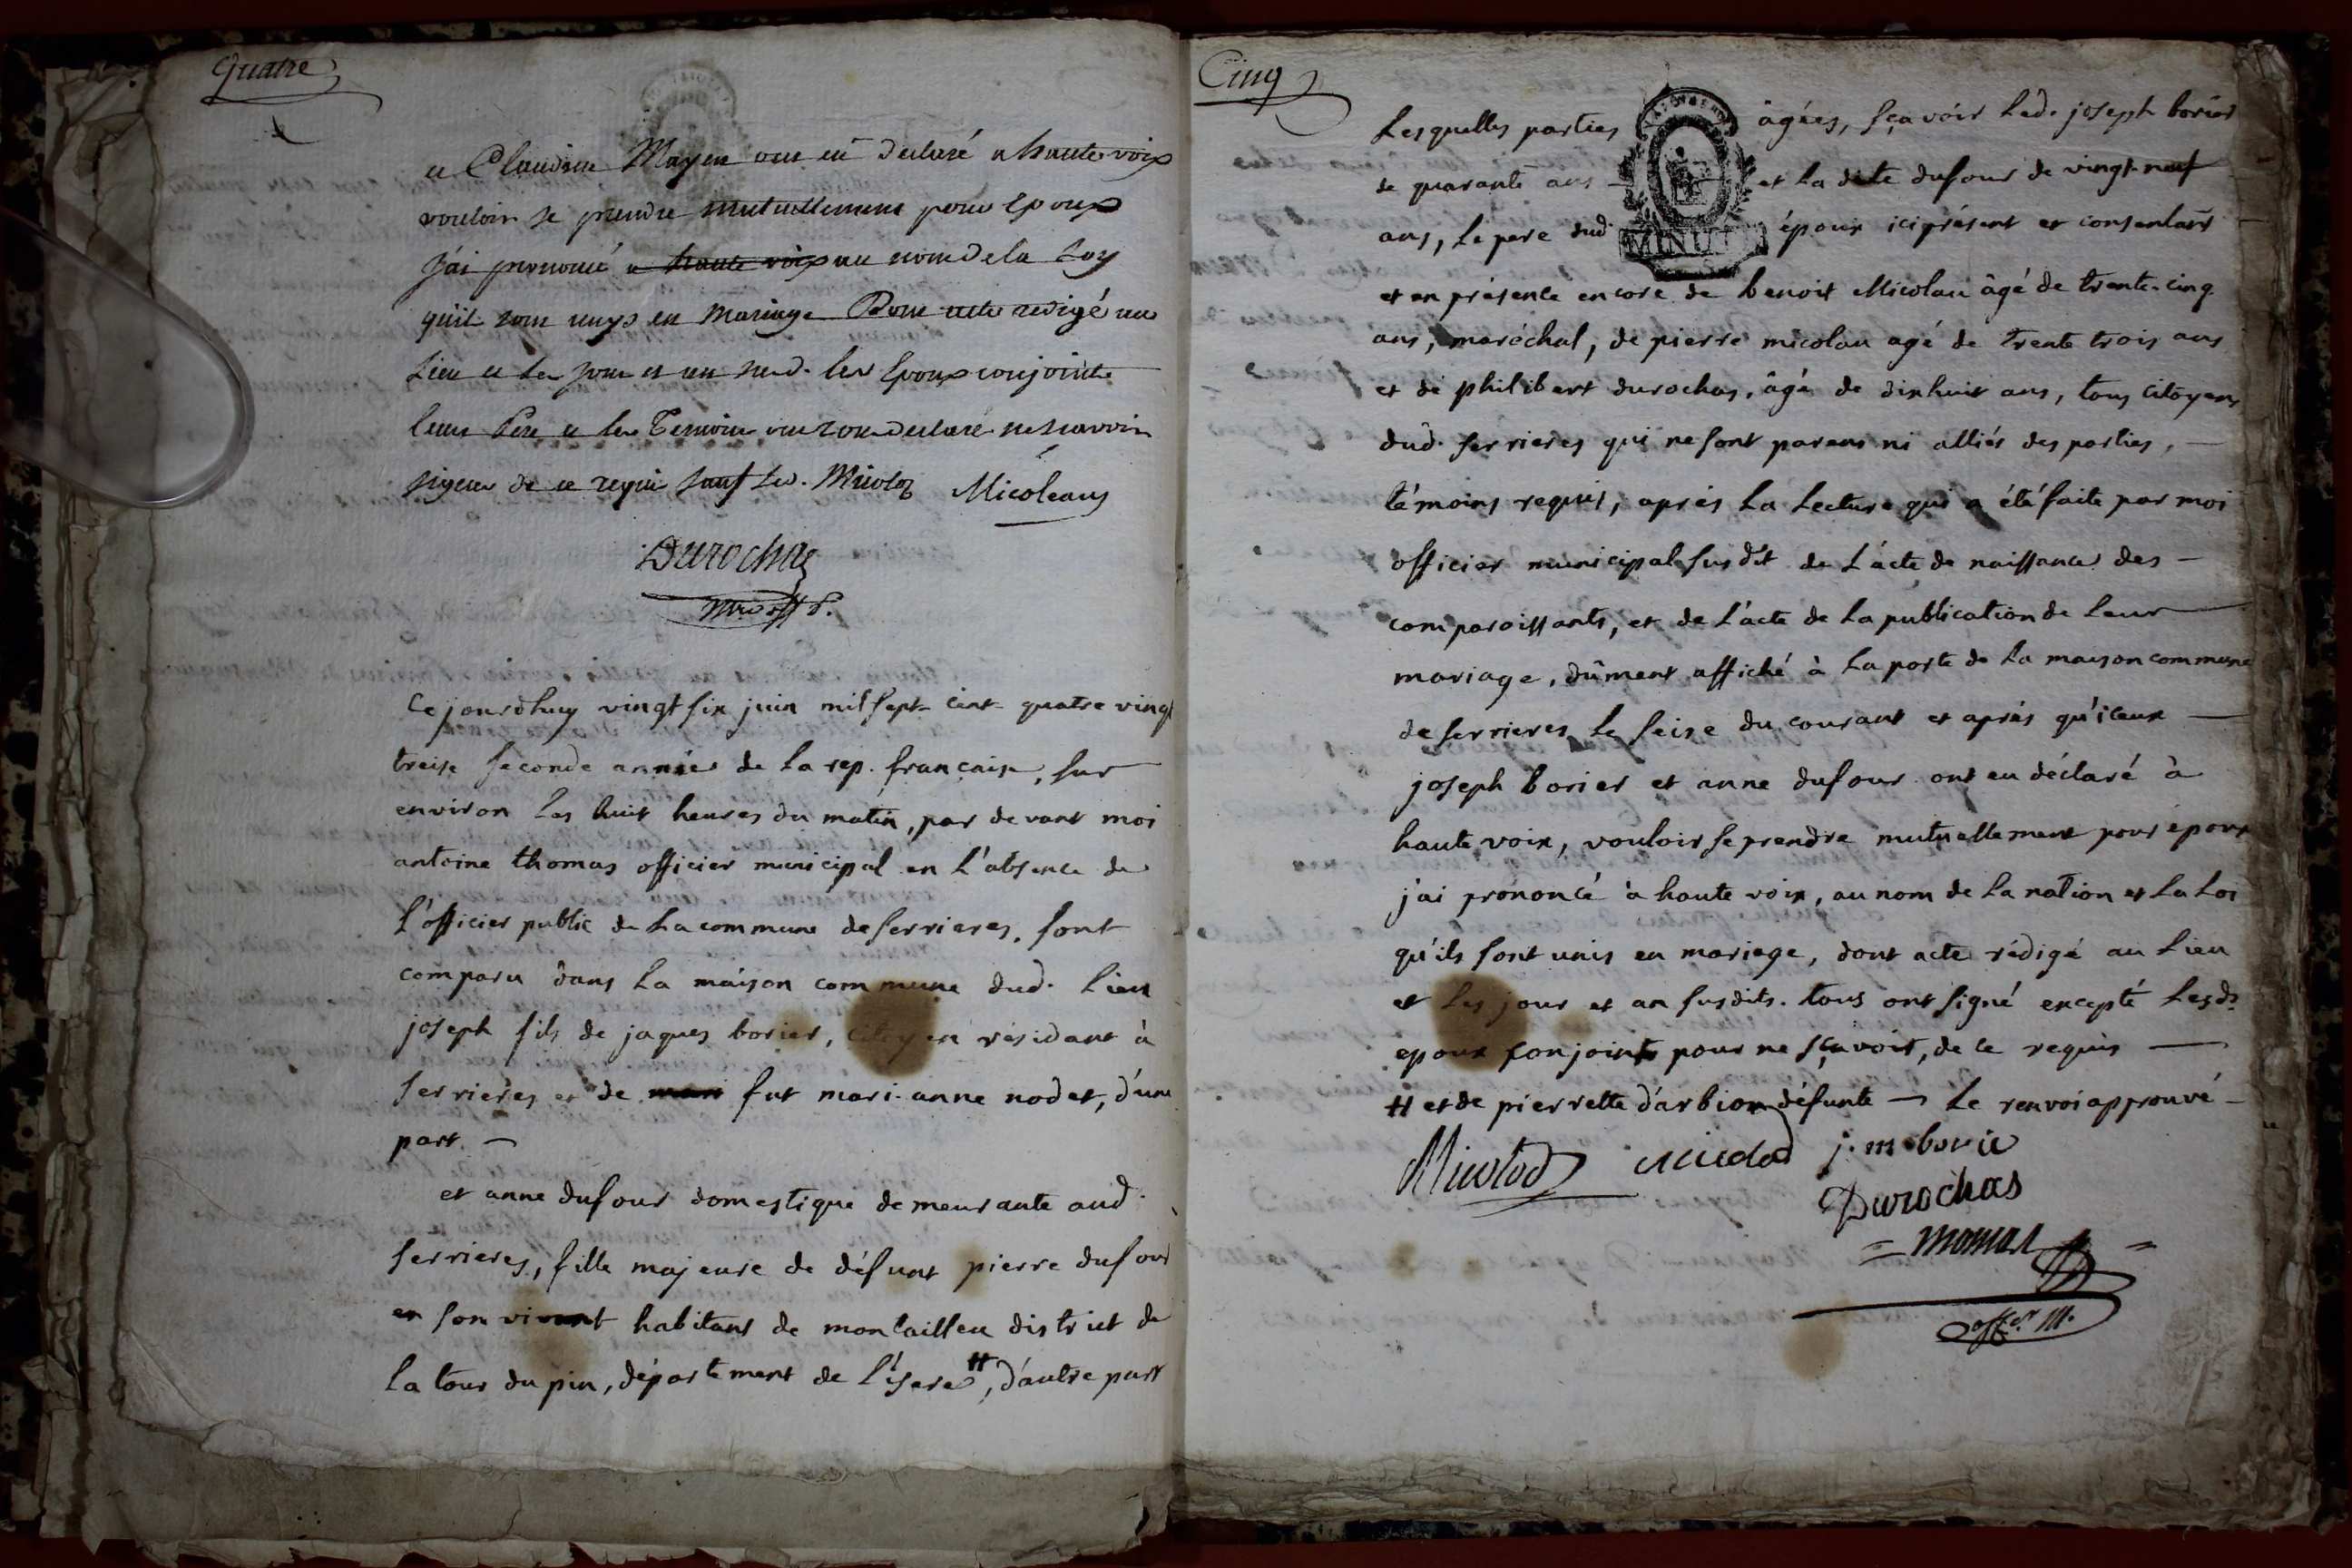 Quatre
et Claudine Mayen ont eu declaré a haute voix
vouloir se prendre mutuellement pour Epoux
J'ai prononcé a haute voix au nom de la Loy
qu'il sont unys en mariage Dont acte redigé au
Lieu et les jour et an susd. les Epoux conjoints
leurs Pere et les Temoins ont tous declaré ne scavoir
signer de ce requis sauf led. Micolod Micoleaus
Durochas
off P.
Ce jourdhuy vingt six juin mil sept cent quatre vingt
treise seconde année de la rep. française, sur
environ les huit heures du matin, par devant moi
antoine thomas officier municipal en l'absence de
l'officier public de la commune de serrieres. sont
comparu dans la maison commune dud. lieu
joseph fils de jaques borier, citoyen résidant à
serrieres et de fut mari-anne nodet, d'une
part. —
et anne dufour domestique demeurante aud.
serrieres, fille majeure de défunt pierre dufour
en son vivant habitant de montailleu district de
la tour du pin, département de l'isere #, d'autre part
Cinq
Lesquelles parties âgées, sçavoir led. joseph borier
de quarante ans — et la dite dufour de vingt-neuf
ans, le pere dud. époux ici présent et consentant
MINUTE
et en présence encore de benoit Micolau âgé de trente-cinq
ans, maréchal, de pierre micolau agé de trente trois ans
et de philibert durochas, âgé de dixhuit ans, tous citoyens
dud. serrieres qui ne sont parens ni alliés des parties, —
témoins requis, après la lecture qui a été faite par moi
officier municipal susdit de l'acte de naissance des —
comparoissants, et de l'acte de la publication de leur
mariage, dûment affiché à la porte de la maison commune
de serrieres le seise du courant et après qu'iceux —
joseph borier et anne dufour ont eu déclaré à
haute voix, vouloir se prendre mutuellement pour époux
j'ai prononcé à haute voix, au nom de la nation et la loi
qu'ils sont unis en mariage, dont acte rédigé au lieu
et les jour et an susdits. tous ont signé excepté lesds.
epoux conjoints pour ne sçavoir, de ce requis —
# et de pierrette d'arbion défunte — le renvoi approuvé —
Micolod micolod j. m borie
Durochas
= thomas =
offer. M.